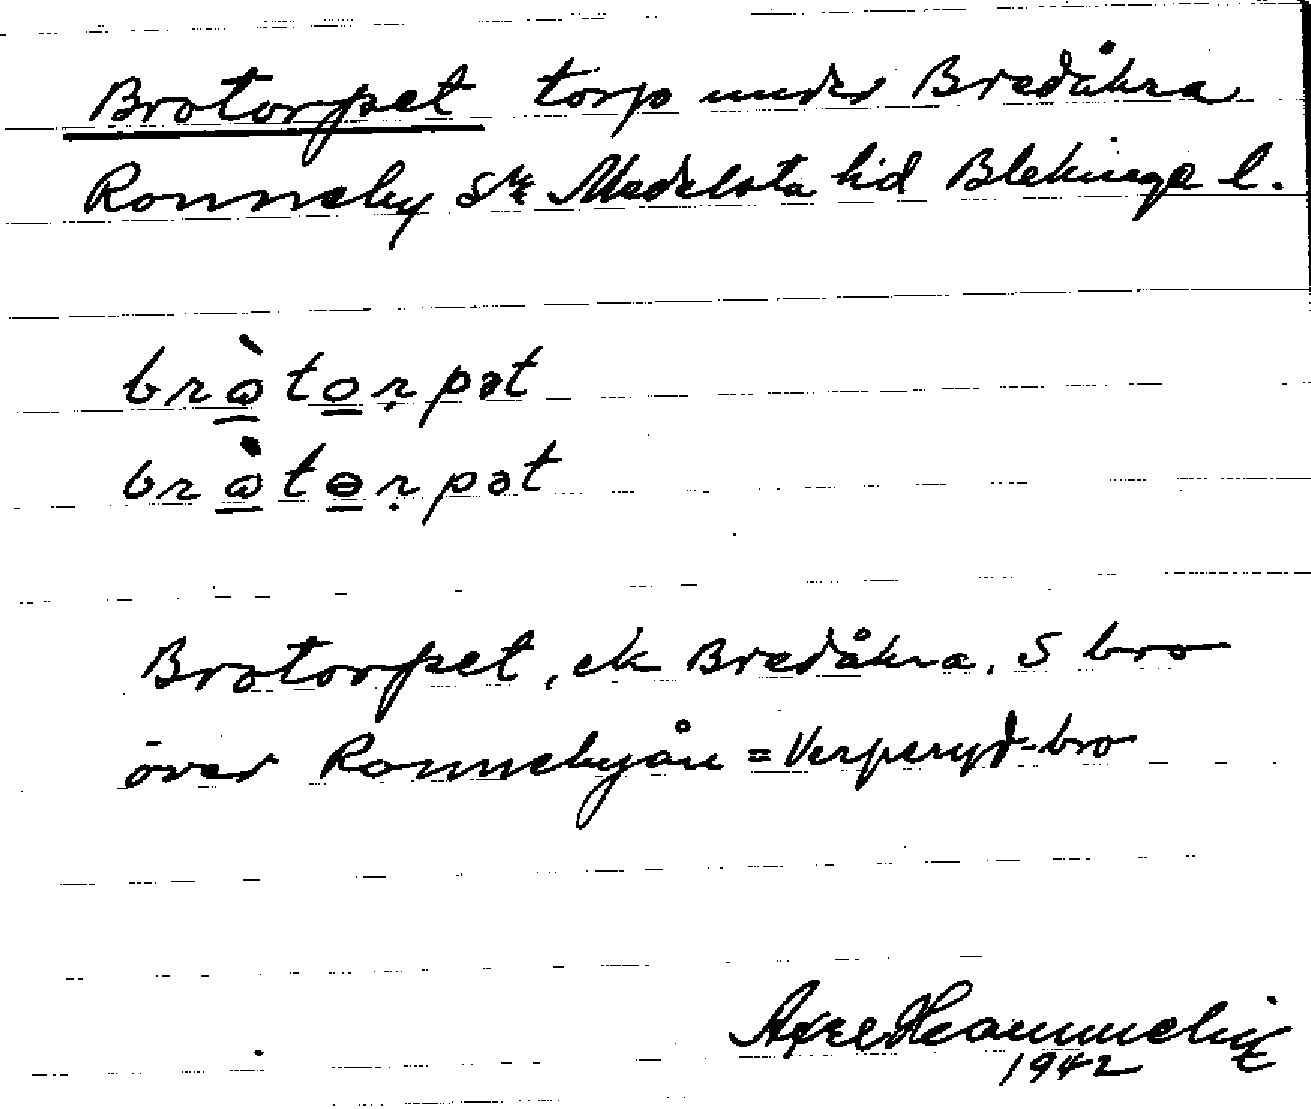 Brotorpet torp under Bredåkra
Ronneby sn Medelsta hd Blekinge l.
brὼtorpət
brὼtɵrpət
Brotorpet, ek Bredåkra. S bro
över Ronnebyån = Verperyd-bro
Axel
1942